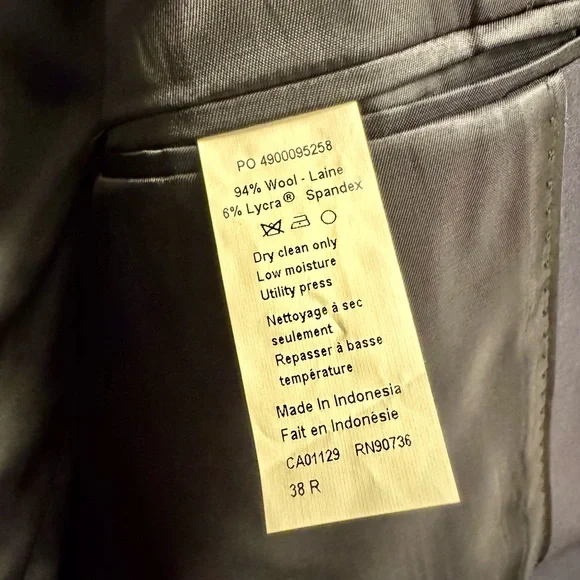 PO 4900095258
94% Wool - Laine
6% Lycra® Spandex
Dry clean only
Low moisture
Utility press
Nettoyage à sec
seulement
Repasser à basse
température
Made In Indonesia
Fait en Indonésie
CA01129 RN90736
38 R